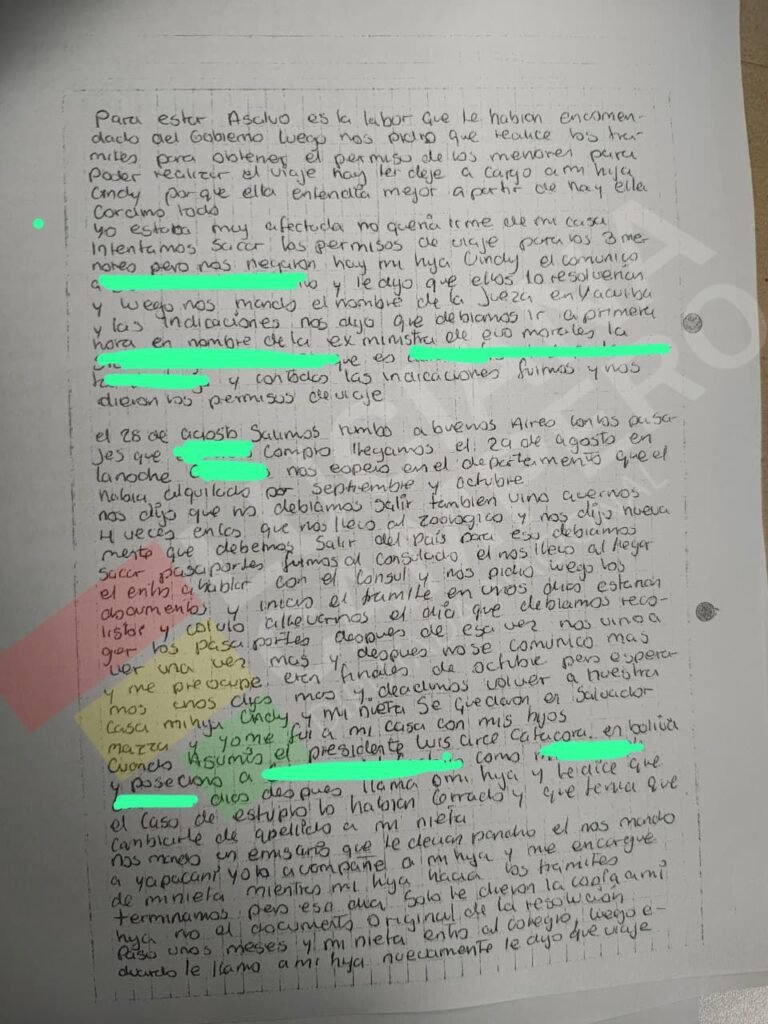 Para estar Asalvo es la labor que le habian encomen-
dado del Gobierno luego nos pidio que realice los tra-
mites para obtener el permiso de los menores para
Poder realizar el viaje hay les deje a cargo a mi hija
Cindy porque ella entendia mejor apartir de hay ella
Cordino todo
yo estaba muy afectada no queria irme de mi casa
Intentamos sacar los permisos de viaje para los 3 me-
nores pero nos negaron hay mi hija Cindy el comunico
a y le dijo que ellos lo resolverian
y luego nos mando el nombre de la Jueza en Yacuiba
y las indicaciones nos dijo que debiamos ir a primera
hora en nombre de la ex ministra de evo morales la
que es
y con todas las indicaciones fuimos y nos
dieron los permisos de viaje
el 28 de agosto Salimos rumbo a buenos Aires con los pasa-
jes que compro llegamos el 29 de agosto en
la noche nos espero en el departamento que el
habia alquilado por septiembre y octubre
nos dijo que no debiamos salir tambien vino avernos
4 veces en los que nos llevo al zoologico y nos dijo nueva
mente que debemos salir del pais para eso debiamos
sacar pasaportes fuimos al consulado el nos llevo al llegar
el entro a hablar con el consul y nos pidio luego los
documentos y inicio el tramite en unos dias estarian
listos y volvio allevarnos el dia que debiamos reco-
ger los pasaportes despues de esa vez nos vino a
ver una vez mas y despues no se comunico mas
y me preocupe eran finales de octubre pero espera-
mos unos dias mas y decidimos volver a nuestra
casa mi hija Cindy y mi nieta se quedaron en Salvador
mazza y yo me fui a mi casa con mis hijos
Cuando Asumio el presidente Luis arce Catacora en bolivia
y posesiono a como
dias despues llama a mi hija y le dice que
el caso de estupro lo habian cerrado y que tenia que
cambiarle de apellido a mi nieta
nos mando un emisario que le decian pancho el nos mando
a yapacani yo la acompañe a mi hija y me encargue
de mi nieta mientras mi hija hacia los tramites
terminamos pero ese dia solo le dieron la copia a mi
hija no el documento original de la resolución
Paso unos meses y mi nieta entro al colegio, luego e-
duardo le llamo a mi hija nuevamente le dijo que viaje